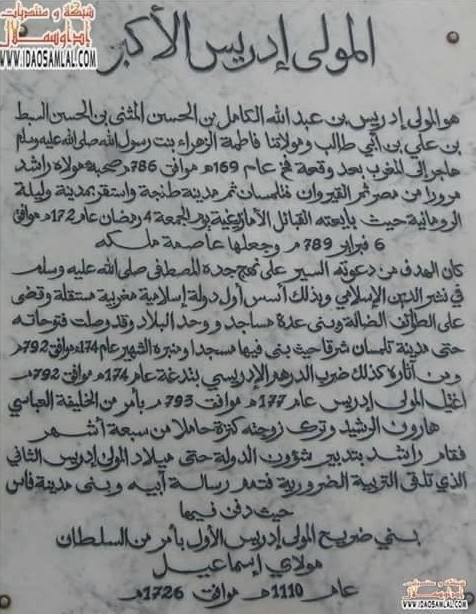 شبكة و منتديات
إداوسملال
WWW.IDAOSAMLAL.COM
المولى إدريس الأكبر
هو المولى إدريس بن عبد الله الكامل بن الحسن المثنى بن الحسن السبط
بن علي بن أبي طالب ومولاتنا فاطمة الزهراء بنت رسول الله صلى الله عليه وسلم
هاجر إلى المغرب بعد وقعة فخ عام 169هـ موافق 786م صحبة مولاه راشد
مرورا من مصر ثم القيروان فتلمسان ثم مدينة طنجة واستقر بمدينة وليلة
الرومانية حيث بايعته القبائل الأمازيغية يوم الجمعة 4 رمضان عام 172هـ موافق
6 فبراير 789م وجعلها عاصمة ملكه
كان الهدف من دعوته السير على نهج جده المصطفى صلى الله عليه وسلم
في نشر الدين الإسلامي وبذلك أسس أول دولة إسلامية مغربية مستقلة وقضى
على الطوائف الضالة وبنى عدة مساجد ووحد البلاد وقد وصلت فتوحاته
حتى مدينة تلمسان شرقا حيث بنى فيها مسجدا ومنبره الشهير عام 174هـ موافق 792م
ومن آثاره كذلك ضرب الدرهم الإدريسي بتدغة عام 174هـ موافق 792م
اغتيل المولى إدريس عام 177هـ موافق 793م بأمر من الخليفة العباسي
هارون الرشيد وترك زوجته كنزة حاملا من سبعة أشهر
فقام راشد بتدبير شؤون الدولة حتى ميلاد المولى إدريس الثاني
الذي تلقى التربية الضرورية فتمم رسالة أبيه وبنى مدينة فاس
حيث دفن فيها
بني ضريح المولى إدريس الأول بأمر من السلطان
مولاي إسماعيل
عام 1110هـ موافق 1726م
شبكة و منتديات
إداوسملال
WWW.IDAOSAMLAL.COM